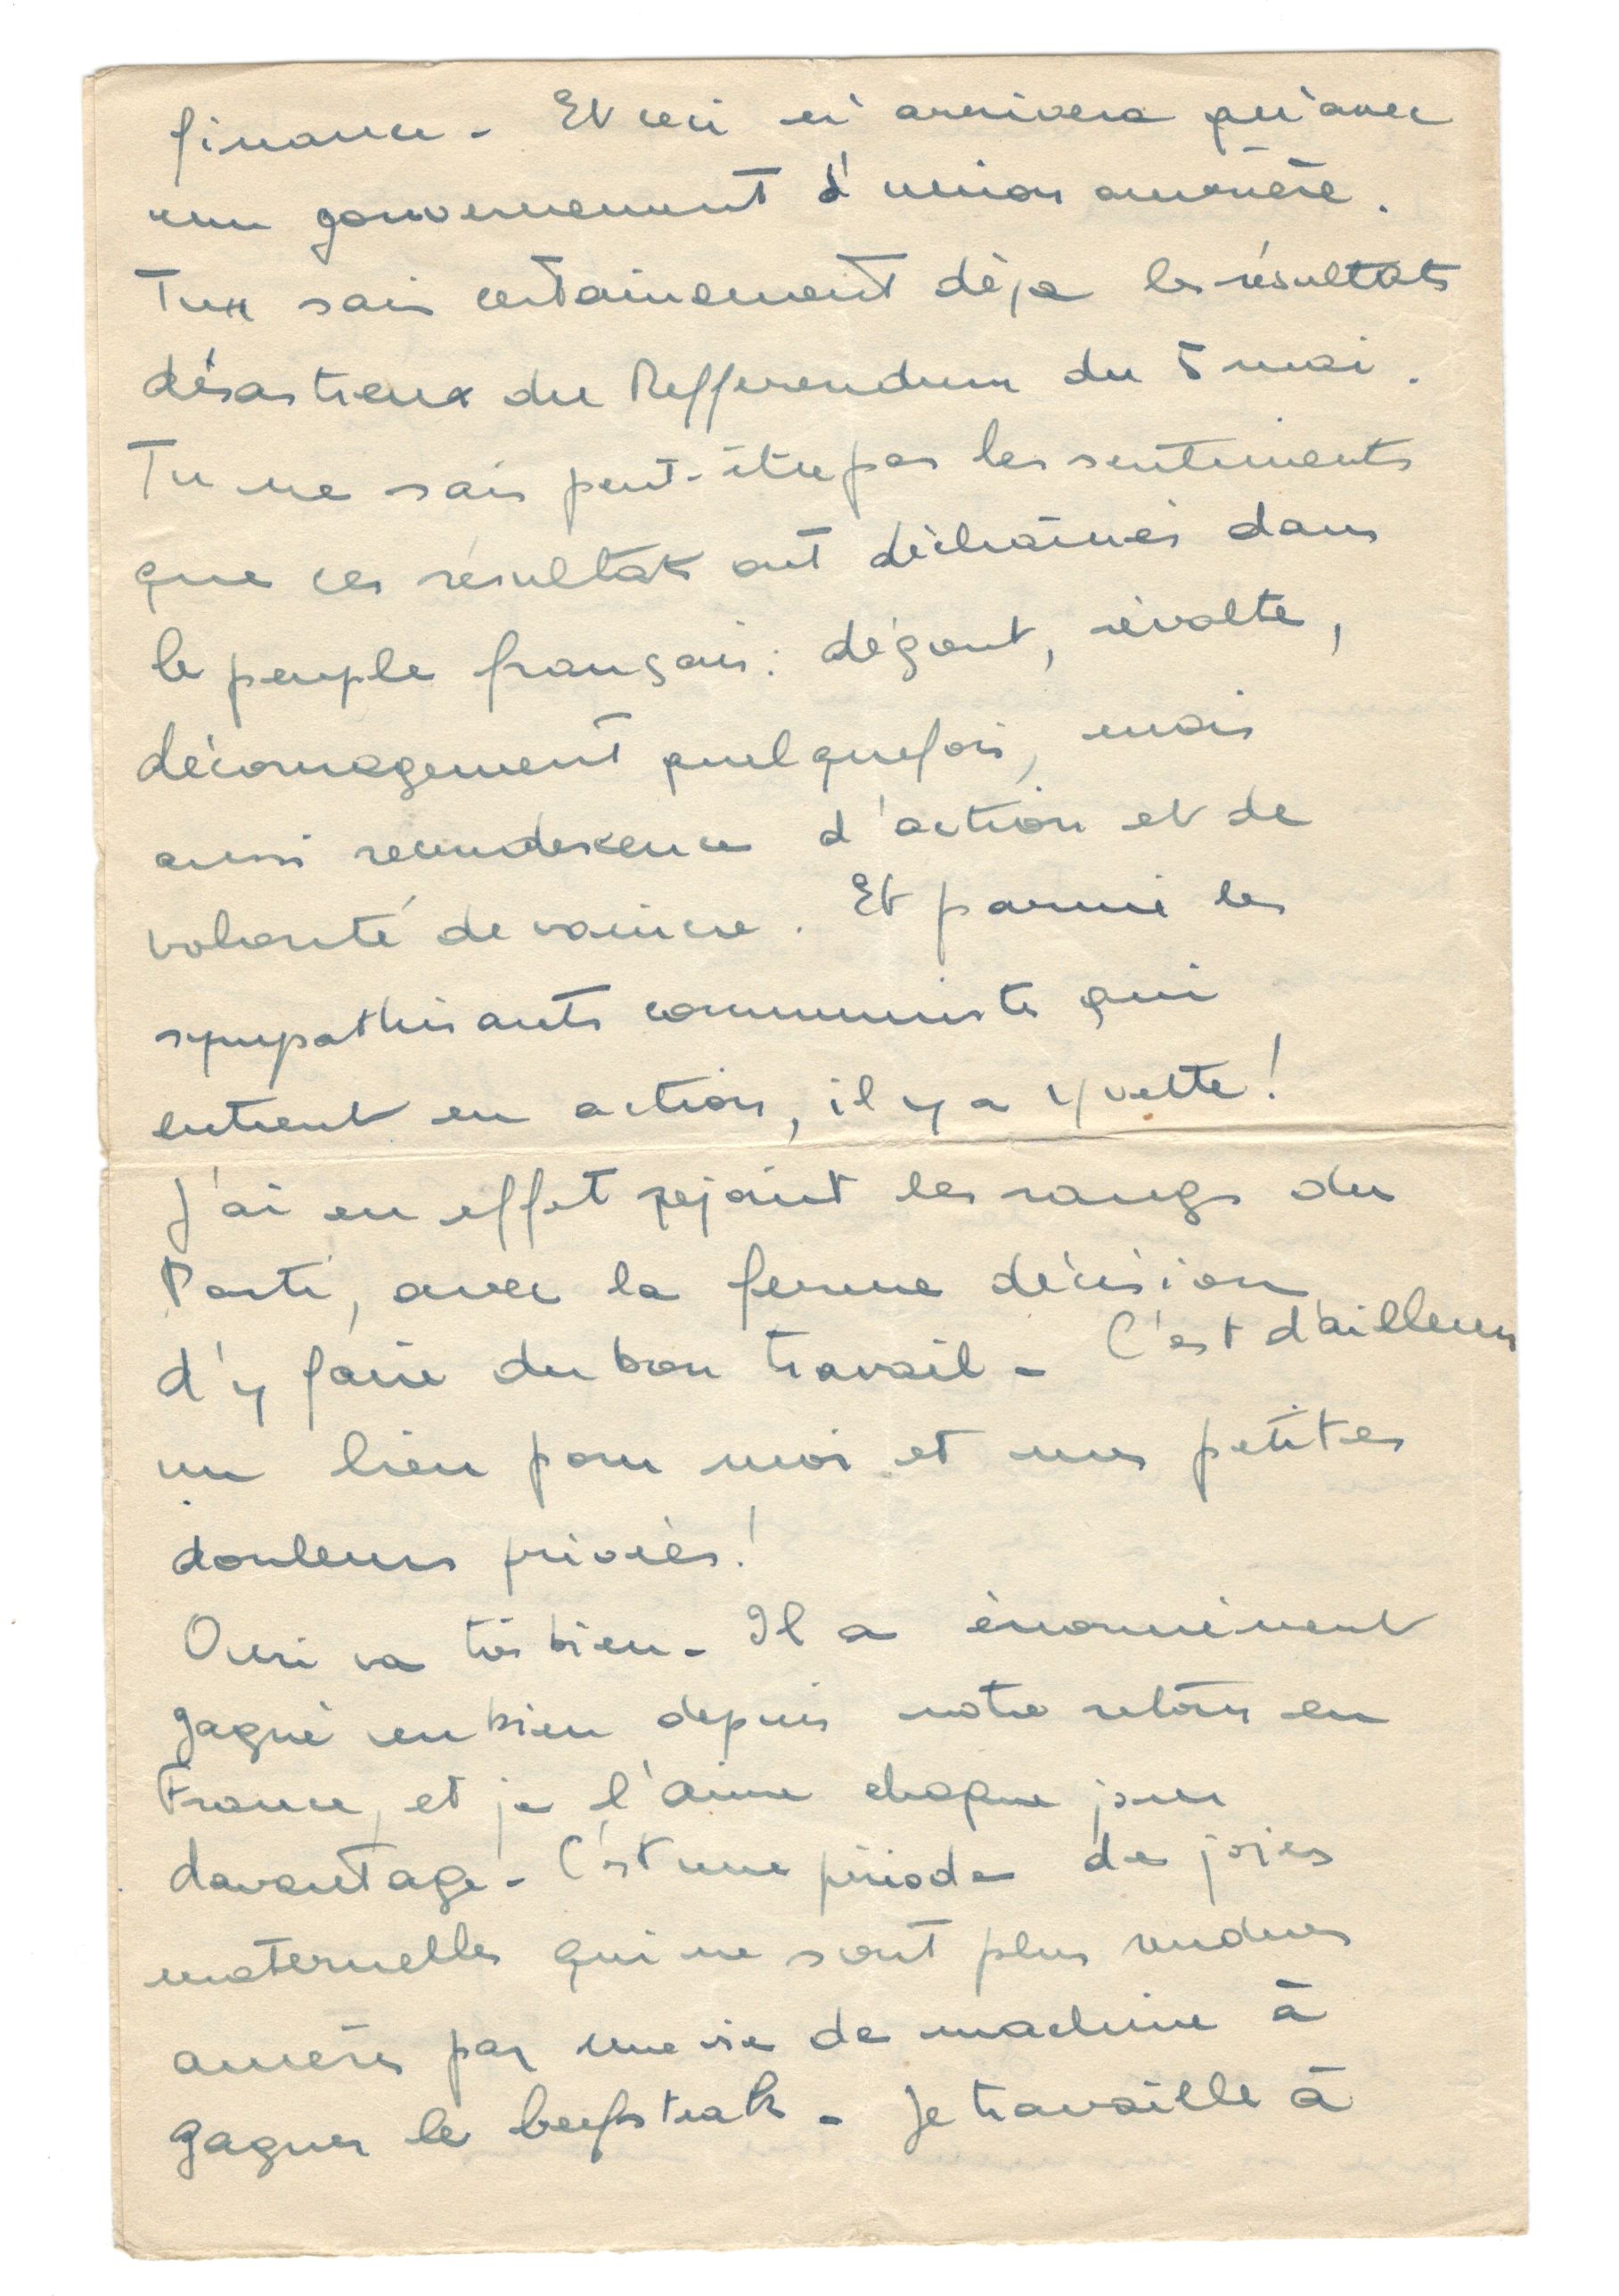 finance - Et ceci n'arrivera qu'avec
un gouvernement d'union ouvrière.
Tu sais certainement déja les résultats
désastreux du Refferendum du 5 mai.
Tu ne sais peut-être pas les sentiments
que ces résultats ont déchaînés dans
le peuple français : dégout, révolte,
découragement quelquefois, mais
aussi recrudescence d'action et de
volonté de vaincre. Et parmi les
sympathisants communistes qui
entrent en action, il y a Yvette !
J'ai en effet rejoint les rangs du
Parti, avec la ferme décision
d'y faire du bon travail - C'est d'ailleurs
un lien pour moi et mes petites
douleurs privées !
Ouri va très bien - Il a énormément
gagné en bien depuis notre retour en
France, et je l'aime chaque jour
davantage - C'est une période de joies
maternelles qui ne sont plus rendues
amères par une vie de machine à
gagner le beefsteak - Je travaille à